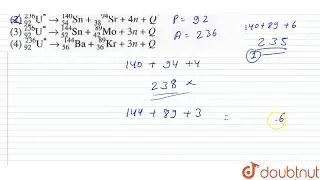 (2) ²³⁶₉₂U* → ¹⁴⁰₅₄Sn + ⁹⁴₃₈Sr + 4n + Q
(3) ²³⁶₉₂U* → ¹⁴⁴₅₂Sn + ⁸⁹₄₂Mo + 3n + Q
(4) ²³⁶₉₂U* → ¹⁴⁴₅₆Ba + ⁸⁹₃₆Kr + 3n + Q
P = 92
A = 236
140+89+6
235
①
140 + 94 +4
238 ×
144 + 89 +3 =
doubtnut